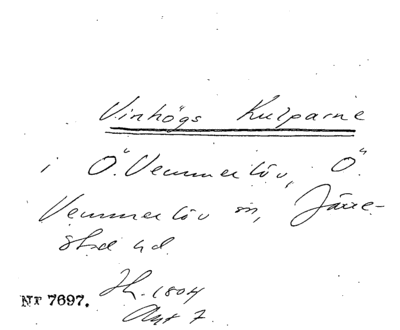 Vinhögs Kulparne
i Ö. Vemmerlöv, Ö.
Vemmerlöv sn, Järre-
stad hd.
Jh. 1804
Akt 7.
Nr 7697.